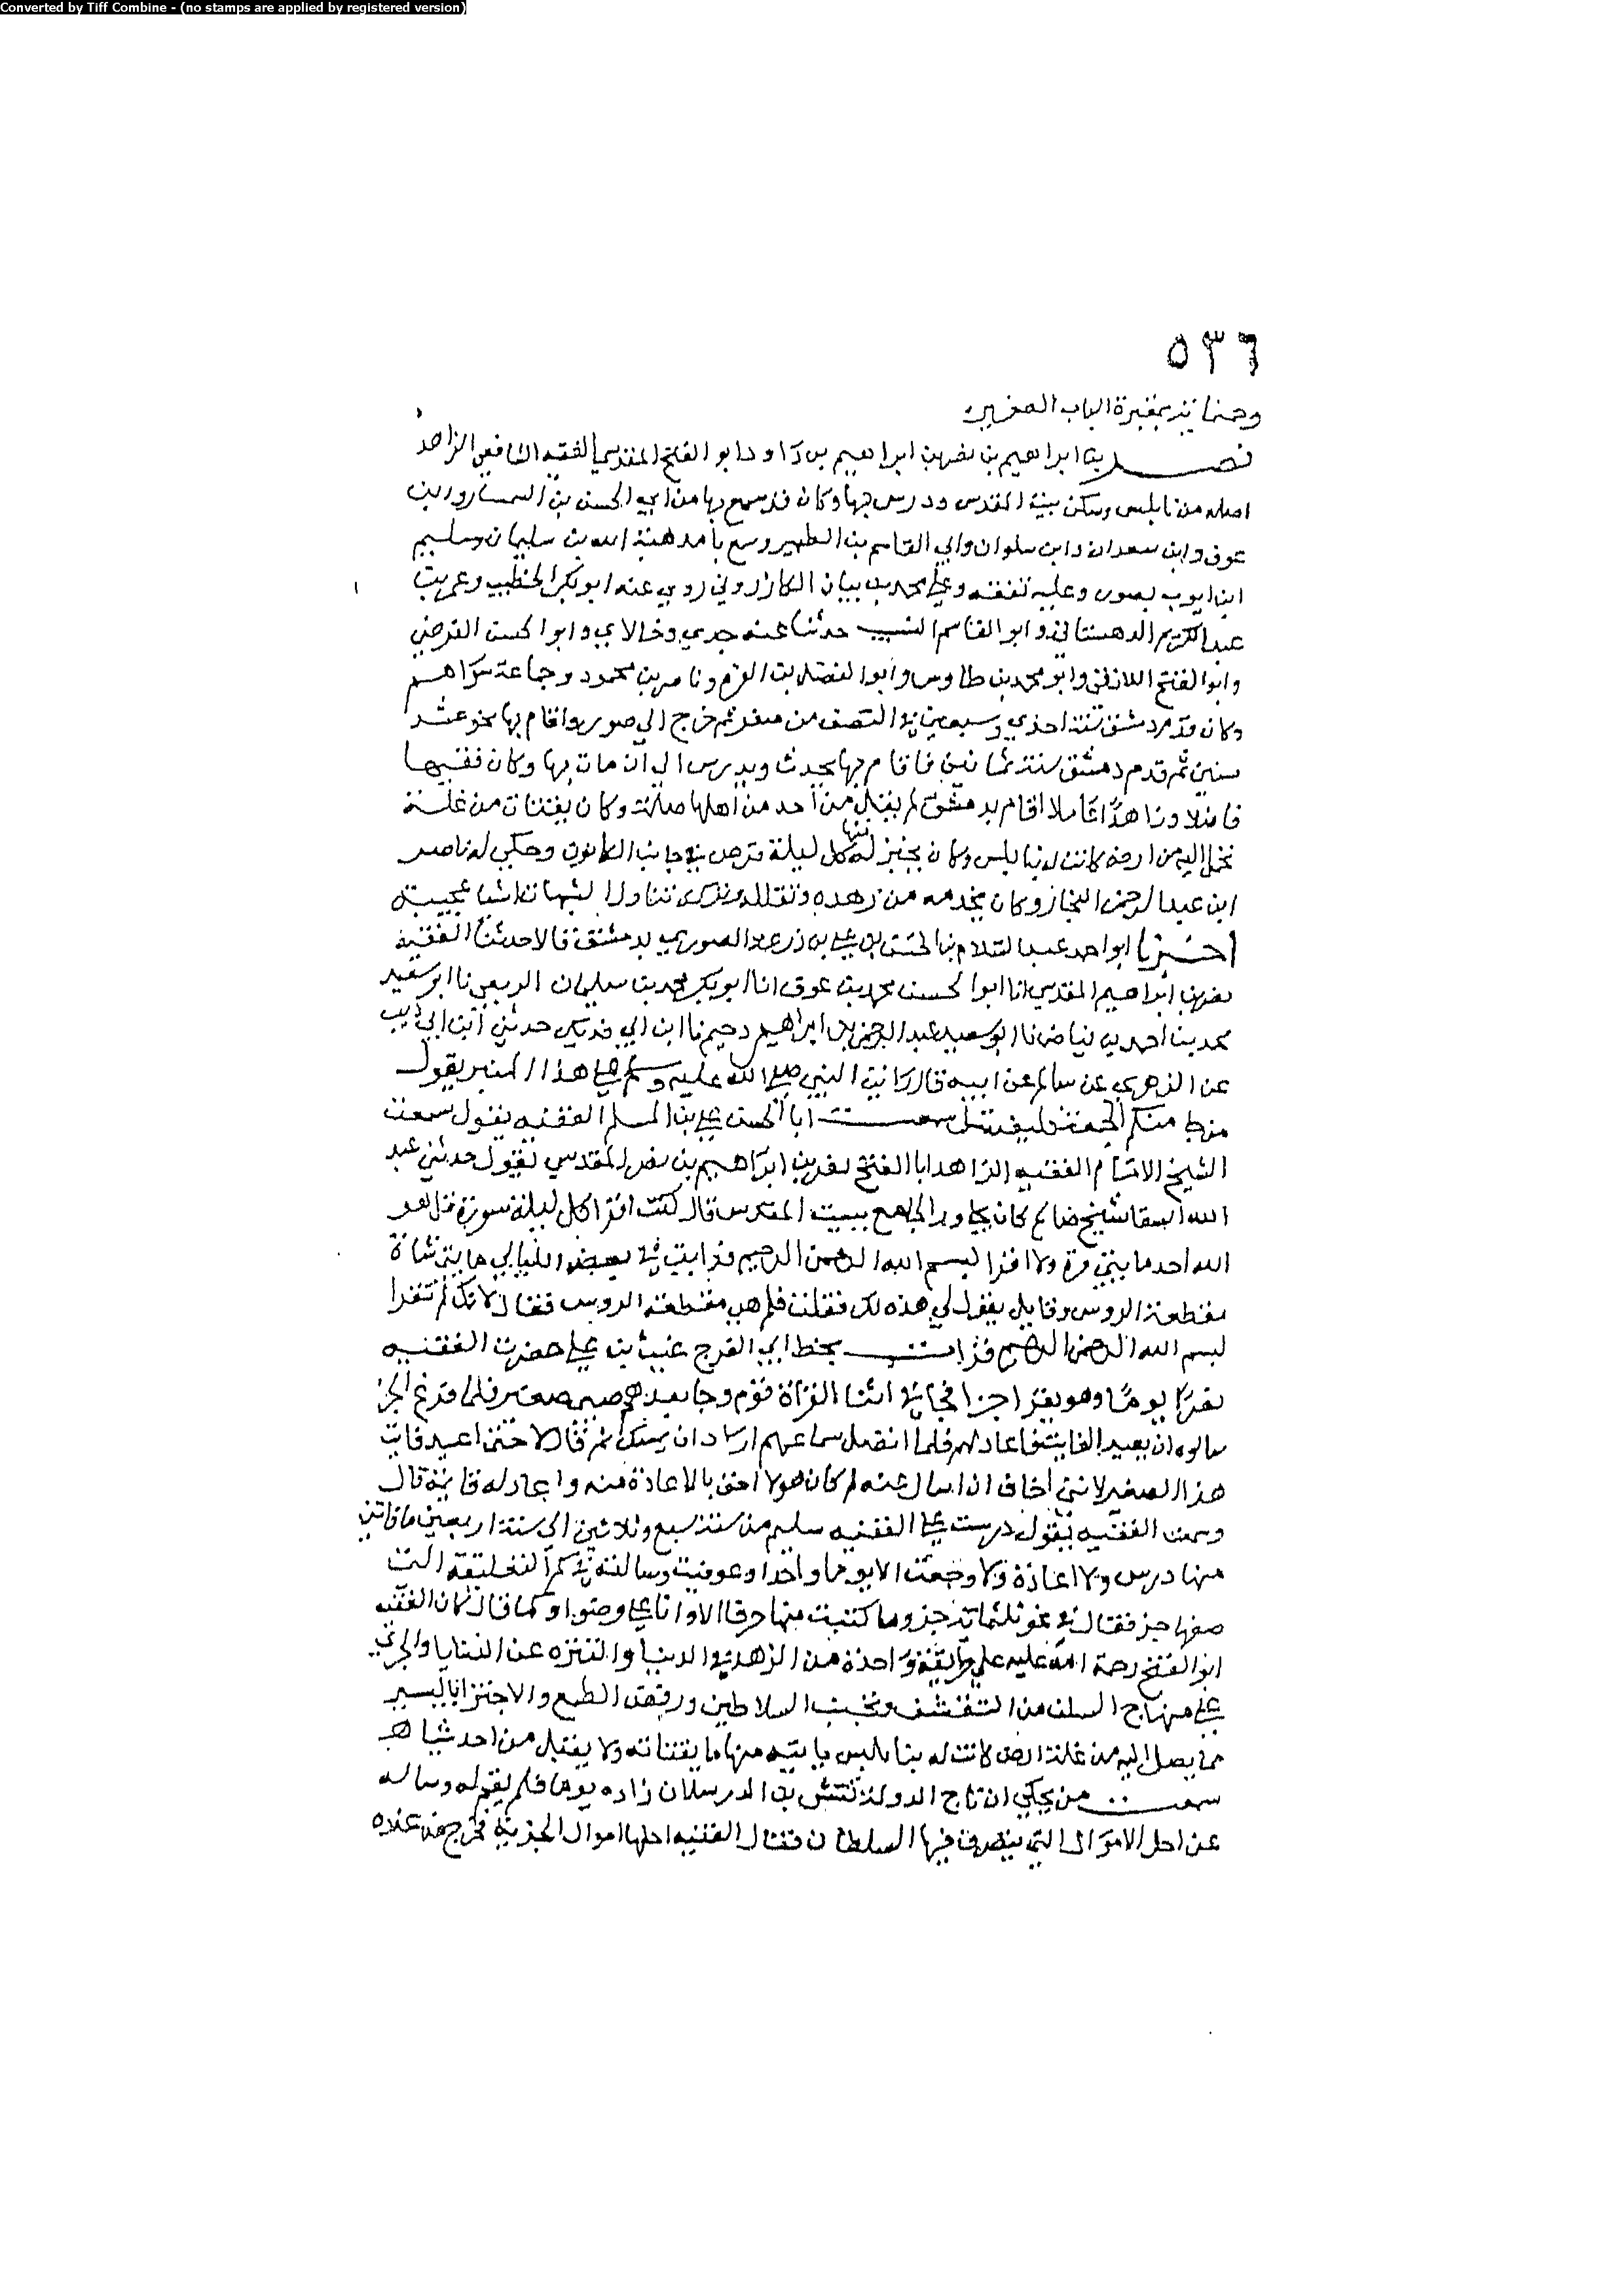 Converted by Tiff Combine - (no stamps are applied by registered version)
٥٣٦
بمقبرة الباب الصغير
نصر بن ابراهيم بن نصر بن ابراهيم بن داود ابو الفتح المقدسي الفقيه الشافعي الزاهد
اصله من نابلس وسكن بيت المقدس ودرس بها وكان قد سمع بها من ابي الحسن بن السمسار وابن
عوف وابن سعدان وابن سلوان وابي القاسم بن الطبيز وسمع بامد هبة الله بن سليمان وسليم
ابن ايوب بصور وعليه تفقه وعلي محمد بن بيان الكازروني روي عنه ابو بكر الخطيب وعمر بن
عبد الكريم الدهستاني وابو القاسم النسيب حدثنا عنه جدي وخالاي وابو الحسن الفرضي
وابو الفتح اللاذقي وابو محمد بن طاوس وابو الفضل بن الفرج وناصر بن محمود وجماعة سواهم
وكان قدم دمشق سنة احدي وسبعين في النصف من صفر ثم خرج الي صور واقام بها نحو عشر
سنين ثم قدم دمشق سنة ثمانين فاقام بها يحدث ويدرس الي ان مات بها وكان فقيها
فاضلا وزاهدا عاملا اقام بدمشق لم يقبل من احد من اهلها صلة وكان يقتات من غلة
تحمل اليه من ارض كانت له بنابلس وكان يخبز له منها كل ليلة قرص في جانب الكانون وحكي له ناصر
ابن عبد الرحمن النجار وكان يخدمه من زهده وتقلله وتركه تناول الشهوات اشيا عجيبة
اخبرنا ابو احمد عبد السلام بن الحسن بن علي بن زرعة الصوري بدمشق قال حدثنا الفقيه
نصر بن ابراهيم المقدسي انا ابو الحسن محمد بن عوف انا ابو بكر محمد بن سليمان الربعي نا ابو سعيد
محمد بن احمد بن فياض نا ابو سعيد عبد الرحمن بن ابراهيم دحيم نا ابن ابي فديك حدثني ابن ابي ذيب
عن الزهري عن سالم عن ابيه قال رايت النبي صلي الله عليه وسلم علي هذا المنبر يقول
من جا منكم الجمعة فليغتسل سمعت ابا الحسن علي بن المسلم الفقيه يقول سمعت
الشيخ الامام الفقيه الزاهد ابا الفتح نصر بن ابراهيم بن نصر المقدسي يقول حدثني عبد
الله السقا شيخ صالح كان يجاور الجامع ببيت المقدس قال كنت اقرا كل ليلة سورة قل هو
الله احد مايتي مرة ولا اقرا بسم الله الرحمن الرحيم فرايت في بعض الليالي مايتي شاة
مقطعة الروس وقايل يقول لي هذه لك فقلت فلم هي مقطعة الروس فقال لانك لم تقرا
بسم الله الرحمن الرحيم قرات بخط ابي الفرج غيث بن علي حضرت الفقيه
نصرا يوما وهو يقرا جزا فجا في اثنا القراة قوم وجا بعدهم صبي صغير فلما فرغ الجز
سالوه ان يعيد الفايت فاعاد لهم فلما انفصل سماعهم اراد ان يمسك ثم قال لا حتى اعيد فايت
هذا الصغير لانني اخاف ان اسال عنه لم كان هولا احق بالاعادة منه واعاد له فايته قال
وسمعت الفقيه يقول درست علي الفقيه سليم من سنة سبع وثلاثين الي سنة اربعين ما فاتني
منها درس ولا اعادة ولا وجعت الا يوما واحدا وعوفيت وسالته في كم التعليقة التي
صنفها جز فقال في نحو ثلثماية جز وما كتبت منها حرفا الا وانا علي وضو او كما قال كان الفقيه
ابو الفتح رحمة الله عليه علي طريقة واحدة من الزهد في الدنيا والتنزه عن الدنايا والجري
علي منهاج السلف من التقشف وتجنب السلاطين ورفض الطمع والاجتزا باليسير
مما يصل اليه من غلة ارض كانت له بنابلس ياتيه منها ما يقتاته ولا يقبل من احد شيا
سمعت من يحكي ان تاج الدولة تتش بن الب رسلان زاره يوما فلم يقم له وساله
عن احل الاموال التي يتصرف فيها السلطان فقال الفقيه احلها اموال الجزية فخرج من عنده